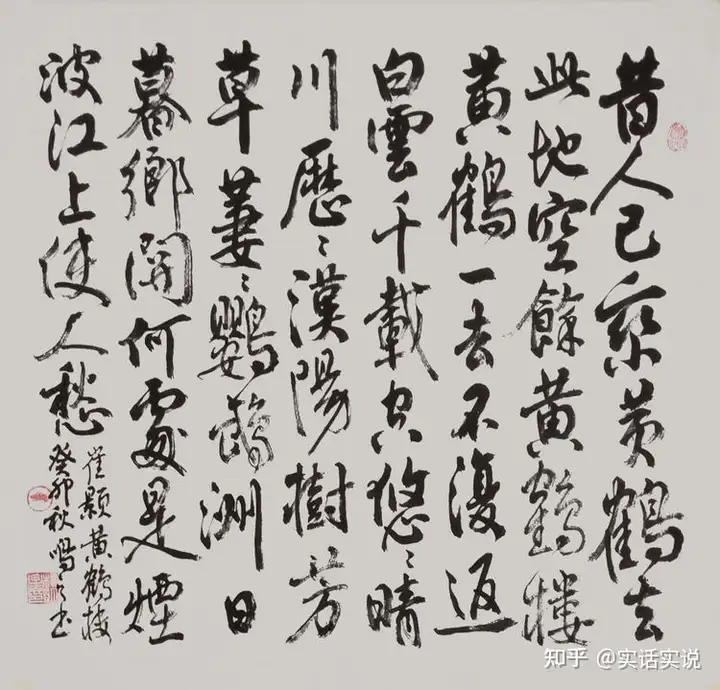 昔人已乘黄鶴去
此地空餘黄鶴樓
黄鶴一去不復返
白雲千載空悠〻晴
川歷〻漢陽樹芳
草萋〻鸚鵡洲日
暮鄉關何處是煙
波江上使人愁
崔顥黄鶴樓
癸卯秋鳴
知乎 @实话实说